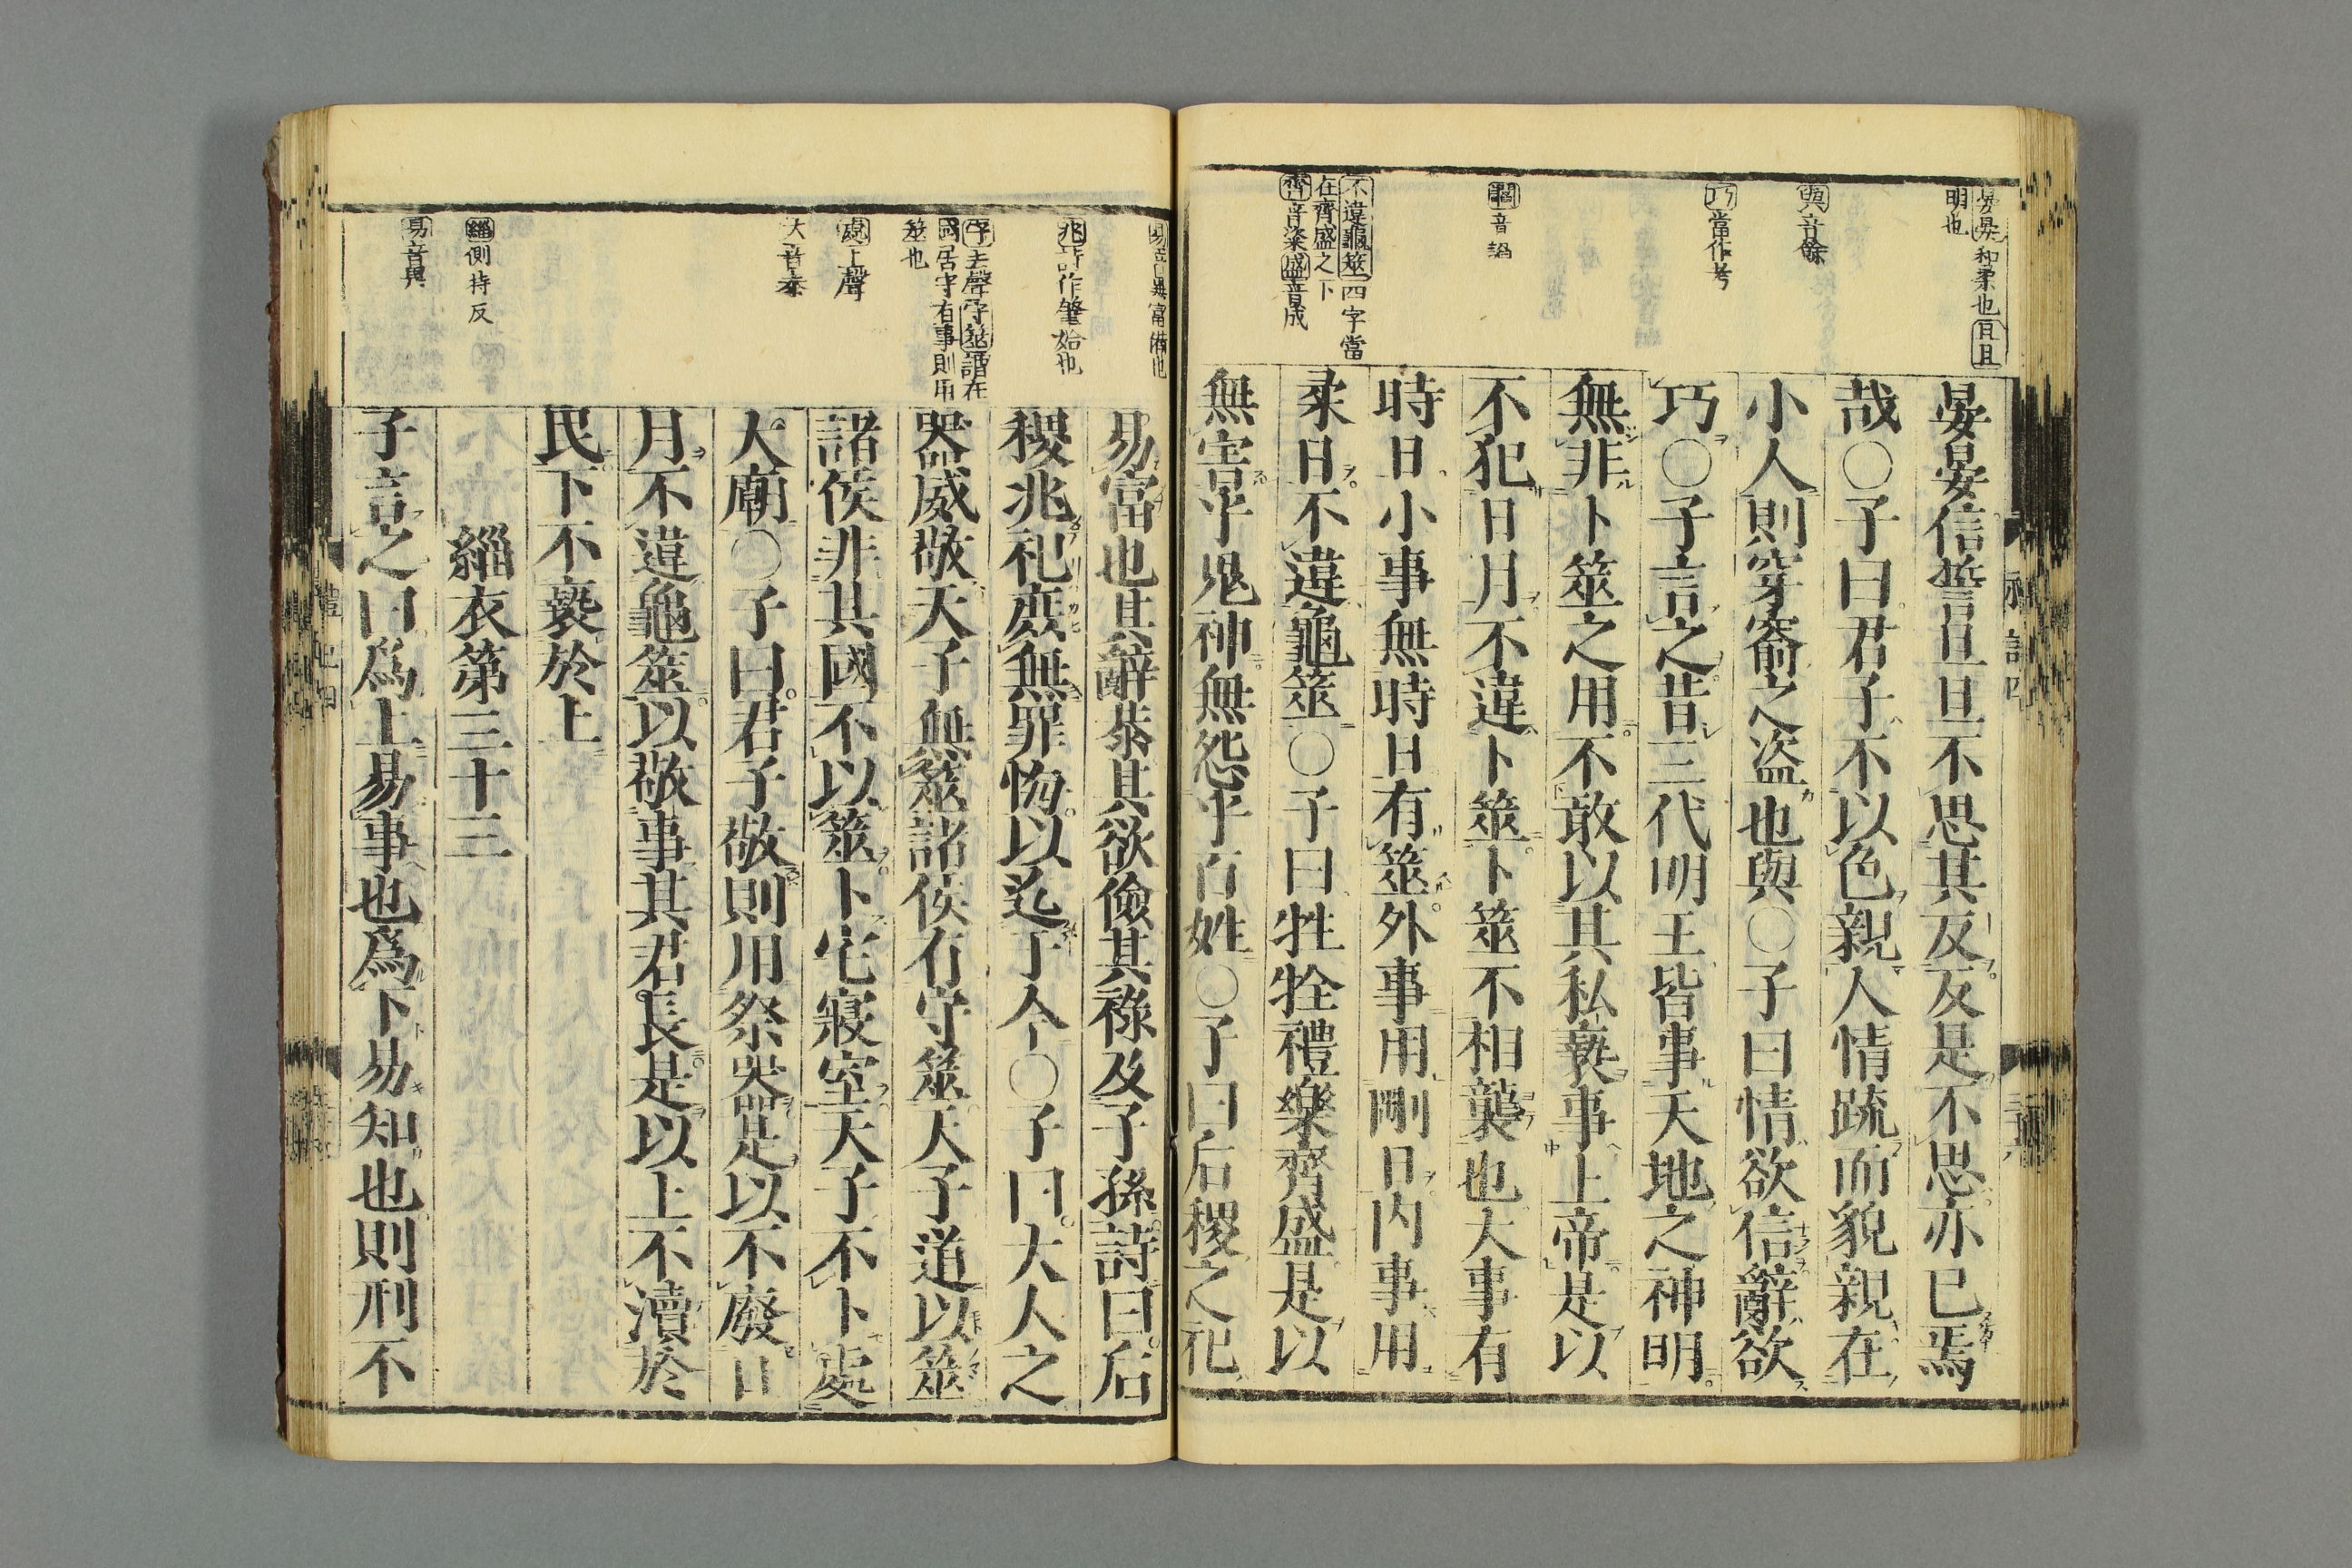 晏晏和柔也旦旦
明也
與音餘
巧當作考
褻音
不違龜筮四字當
在齊盛之下
齊音粢盛音成
晏晏信誓旦旦不思其反反是不思亦已焉
哉〇子曰君子不以色親人情疏而貌親在
小人則穿窬之盜也與〇子曰情欲信辭欲
巧〇子言之昔三代明王皆事天地之神明
無非卜筮之用不敢以其私褻事上帝是以
不犯日月不違卜筮卜筮不相襲也大事有
時日小事無時日有筮外事用剛日內事用
柔日不違龜筮〇子曰牲牷禮樂齊盛是以
無害乎鬼神無怨乎百姓〇子曰后稷之祀
禮記四
易音異富備也
兆詩作肇始也
守去聲守筮謂在
國居守有事則用
筮也
處上聲
大音泰
緇側持反
易音異
易富也其辭恭其欲儉其祿及子孫詩曰后
稷兆祀庶無罪悔以迄于今〇子曰大人之
器威敬天子無筮諸侯有守筮天子道以筮
諸侯非其國不以筮卜宅寢室天子不卜處
大廟〇子曰君子敬則用祭器是以不廢日
月不違龜筮以敬事其君長是以上不瀆於
民下不褻於上
緇衣第三十三
子言之曰爲上易事也爲下易知也則刑不
禮記四